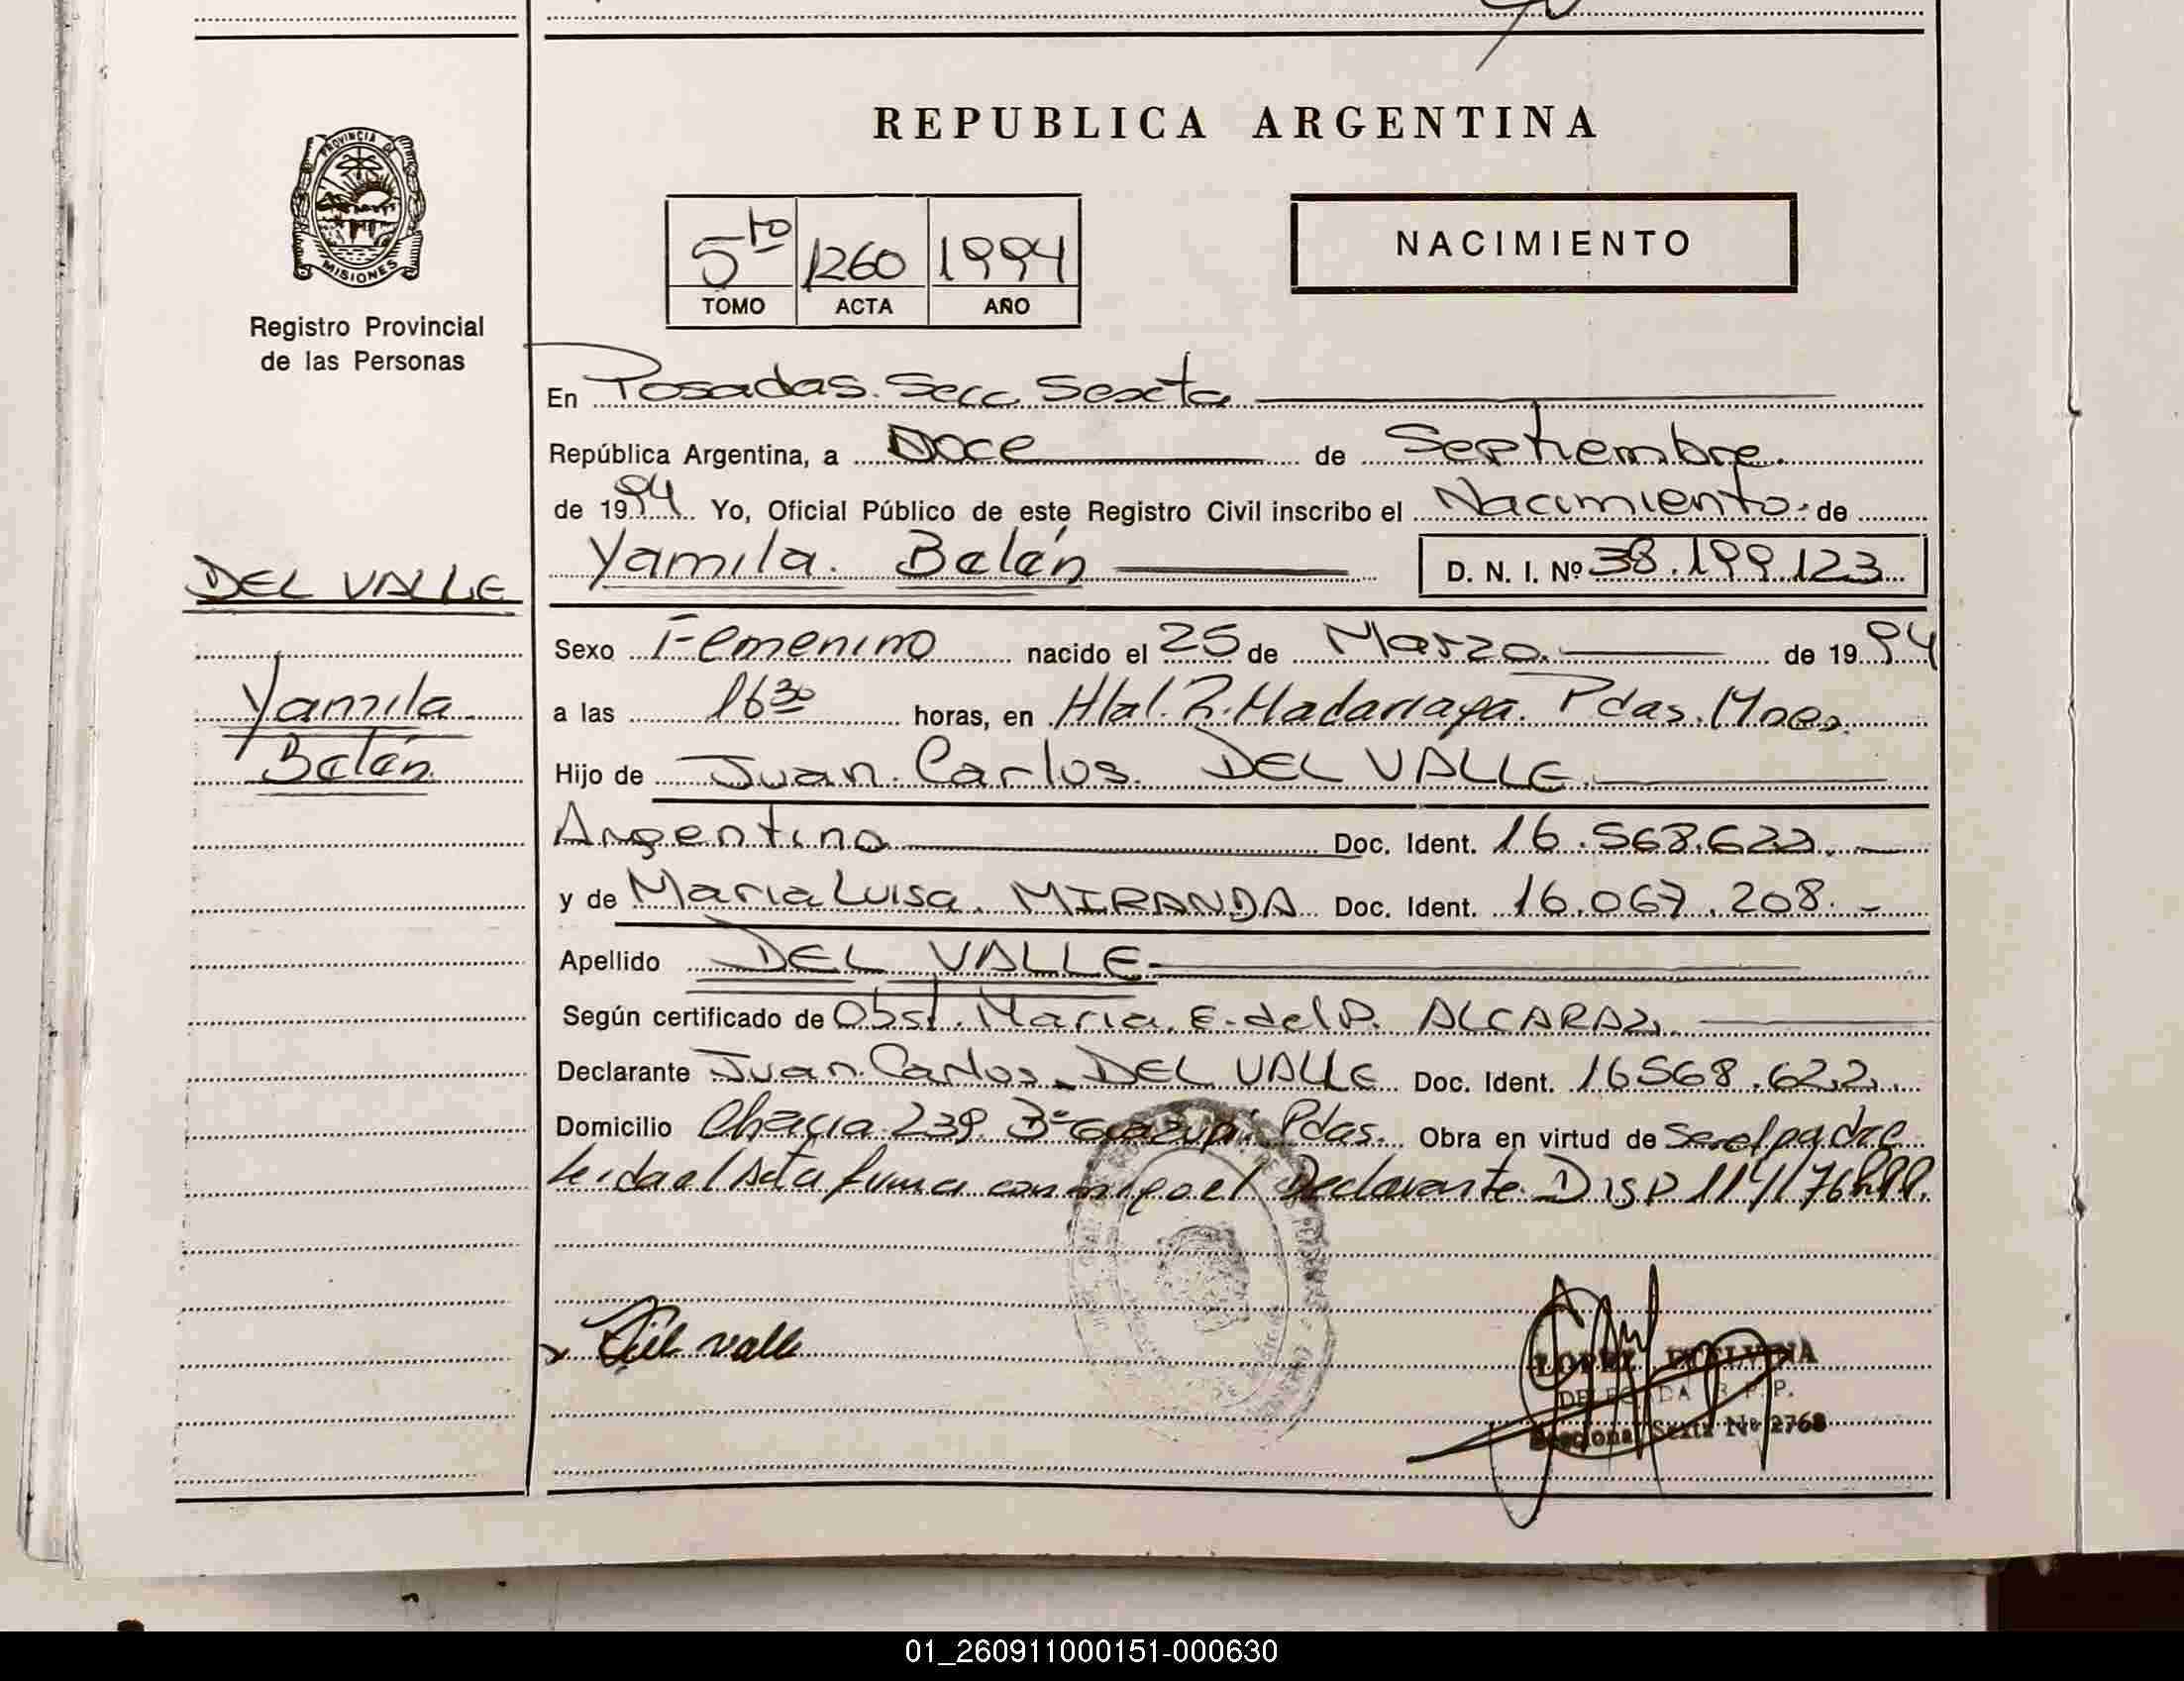 REPUBLICA ARGENTINA
PROVINCIA DE
MISIONES
Registro Provincial
de las Personas
5to 1260 1994
TOMO ACTA AÑO
NACIMIENTO
En Posadas. Secc. Sexta
República Argentina, a Doce de Septiembre.
de 1994 Yo, Oficial Público de este Registro Civil inscribo el Nacimiento. de
Yamila. Belén D. N. I. Nº 38.199.123
DEL VALLE
Yamila
Belén
Sexo Femenino nacido el 25 de Marzo. de 1994
a las 16 30 horas, en Htal. R. Madariaga. Pdas. Mnes.
Hijo de Juan. Carlos. DEL VALLE.
Argentino Doc. Ident. 16.568.622.
y de Maria Luisa. MIRANDA Doc. Ident. 16.067.208.-
Apellido DEL VALLE.
Según certificado de Obst. Maria. E. del P. ALCARAZ.
Declarante Juan. Carlos. DEL VALLE Doc. Ident. 16568.622.
Domicilio 239 Bº Pdas. Obra en virtud de Ser el padre
Leida el Acta firma conmigo el Declarante. Disp 114/76
Del valle
LOPEZ ETELVINA
DELEGADA R.P.P.
Seccional Sexta Nº 2768
01_260911000151-000630